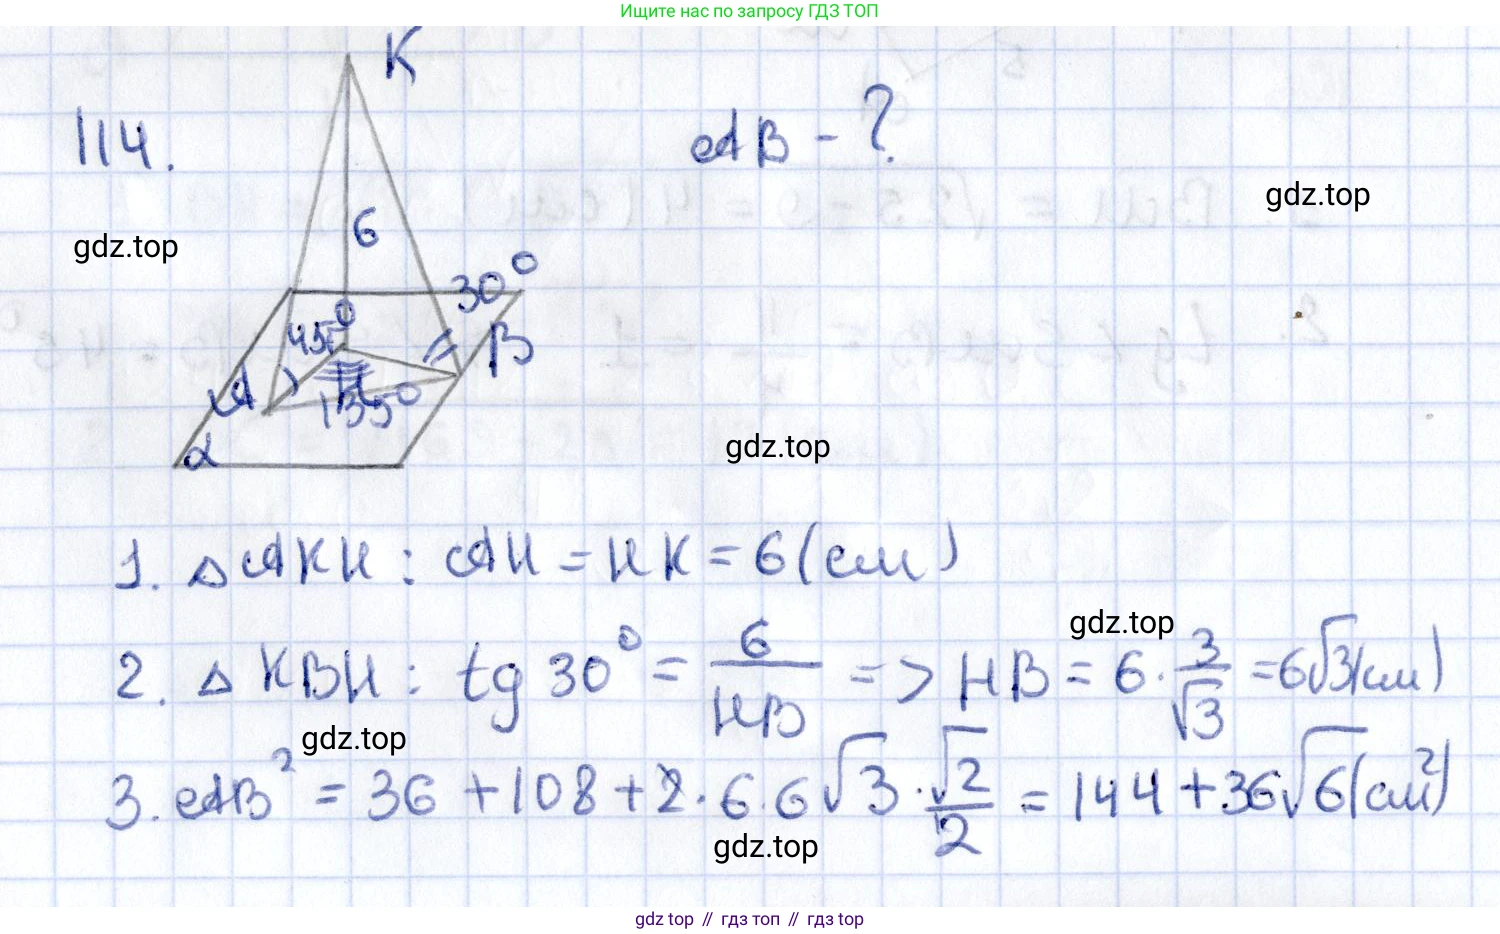 Ищите нас по запросу ГДЗ ТОП
K
114.
AB - ?
gdz.top
6
gdz.top
30°
45°
B
A
H
135°
α
gdz.top
1. △AKH : AH = HK = 6 (см)
gdz.top
2. △KBH : tg 30° = 6/HB => HB = 6 · 3/√3 = 6√3 (см)
gdz.top
3. AB² = 36 + 108 + 2 · 6 · 6√3 · √2/2 = 144 + 36√6 (см²)
gdz.top
gdz top // гдз топ // гдз top